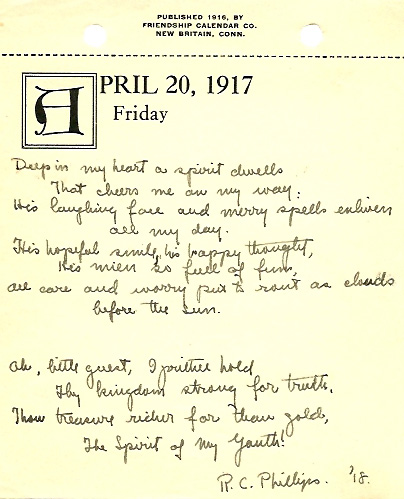 PUBLISHED 1916, BY
FRIENDSHIP CALENDAR CO.
NEW BRITAIN, CONN.
APRIL 20, 1917
Friday
Deep in my heart a spirit dwells
That cheers me on my way.
His laughing face and merry spells enliven
all my day.
His hopeful smile, his happy thought,
His mien so full of fun,
all care and worry put to rout as clouds
before the sun.
Oh, little guest, I prithee hold
Thy kingdom strong for truth,
Thou treasure richer far than gold,
The Spirit of My Youth!
R. C. Phillips. '18.